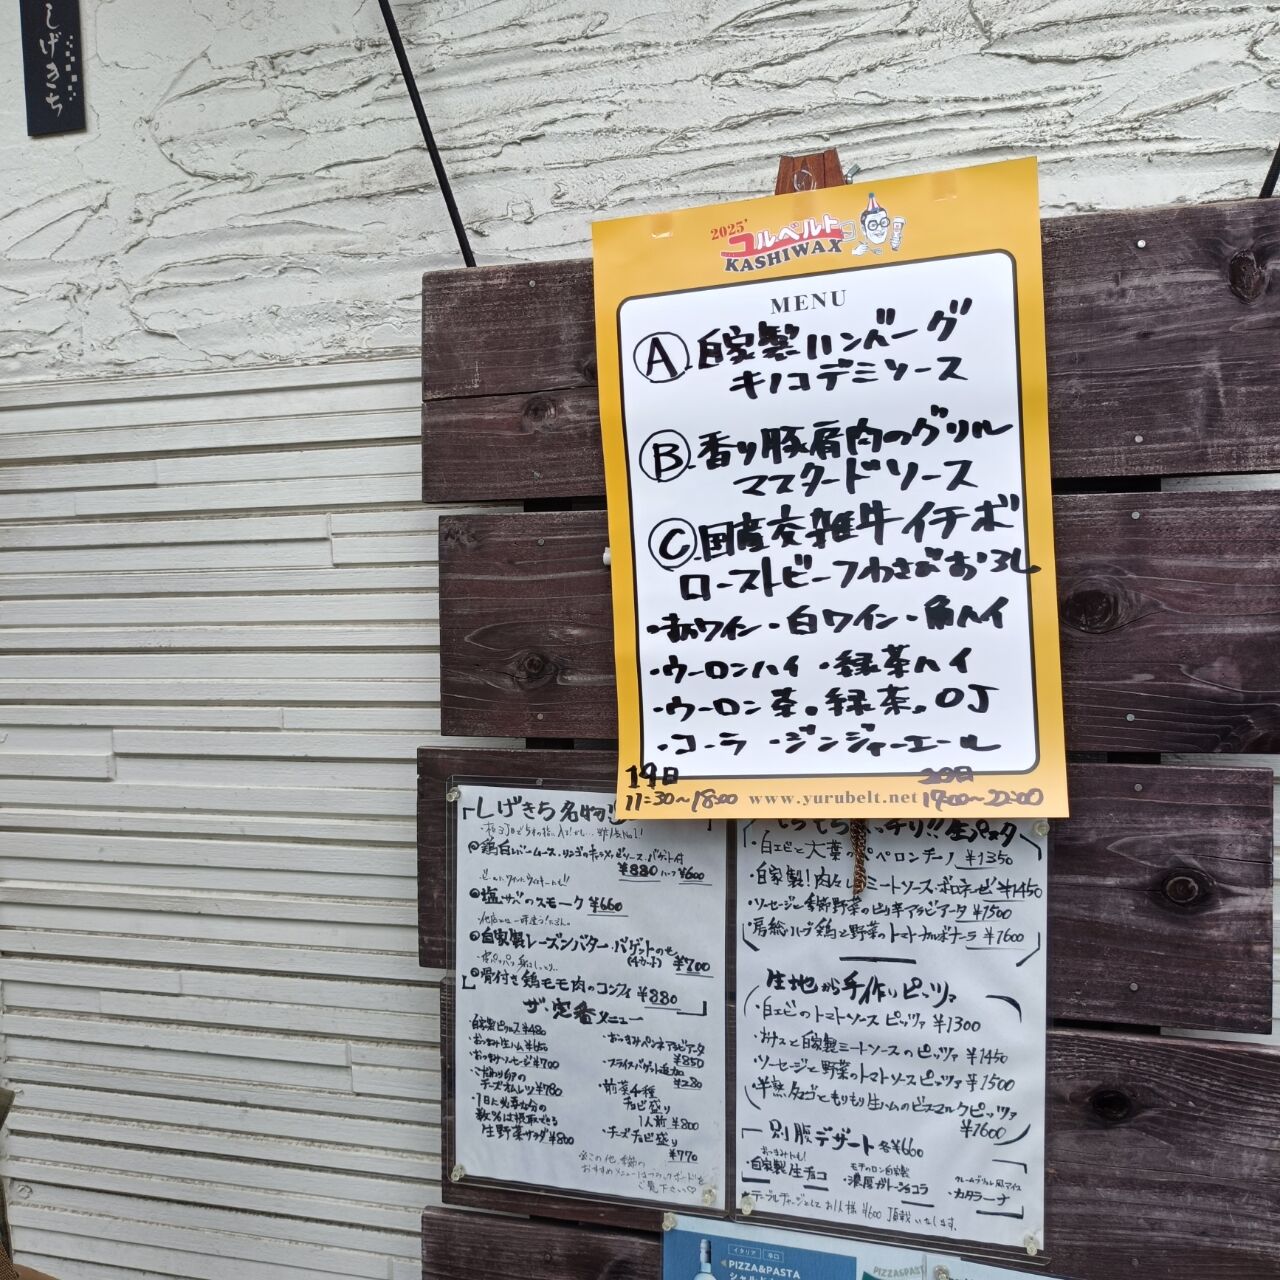 しげきち
2025'
コルベルト
KASHIWAX
MENU
Ⓐ.自家製ハンバーグ
キノコデミソース
Ⓑ.香り豚肩肉のグリル
マスタードソース
Ⓒ.国産交雑牛イチボ
ローストビーフわさびおろし
・赤ワイン・白ワイン・角ハイ
・ウーロンハイ・緑茶ハイ
・ウーロン茶。緑茶。OJ
・コーラ ・ジンジャーエール
19日 20日
11:30~18:00 www.yurubelt.net 17:00~22:00
しげきち名物
鶏白レバームース・リンゴのキャラメルソース・バゲット付
¥880 ハーフ¥600
塩サバのスモーク ¥660
自家製レーズンバター・バゲットのせ
(4カット) ¥700
骨付き鶏モモ肉のコンフィ ¥880
ザ・定番メニュー
・自家製ピクルス¥480
・おつまみ生ハム¥650
・おつまみソーセージ¥700
・こだわり卵の
チーズオムレツ¥780
・1日に必要な分の
数%は摂取できる
生野菜サラダ¥800
・おつまみペンネアラビアータ
¥850
・スライスバゲット追加
¥280
・前菜4種
チョビ盛り
1人前 ¥800
・チーズチョビ盛り
¥770
※この他、季節の
おすすめメニューはブラックボードを
ご覧下さい♡
もちもち!!生パスタ
・白エビと大葉のペペロンチーノ ¥1350
・自家製!肉々しミートソース・ボロネーゼ ¥1450
・ソーセージと季節野菜のピリ辛アラビアータ ¥1500
・房総ハーブ鶏と野菜のトマトクリーム ¥1600
生地から手作りピッツァ
・白エビのトマトソースピッツァ ¥1300
・ナスと自家製ミートソースのピッツァ ¥1450
・ソーセージと野菜のトマトソースピッツァ ¥1500
・半熟タマゴともりもり生ハムのビスマルクピッツァ
¥1600
別腹デザート 各¥660
おつまみにも!
・自家製生チョコ
モチロン自家製
・濃厚ガトーショコラ
クレームブリュレ風アイス
・カタラーナ
★テーブルチャージとしてお1人様 ¥600 頂戴いたします。
イタリア 辛口
PIZZA&PASTA
PIZZA&PAST